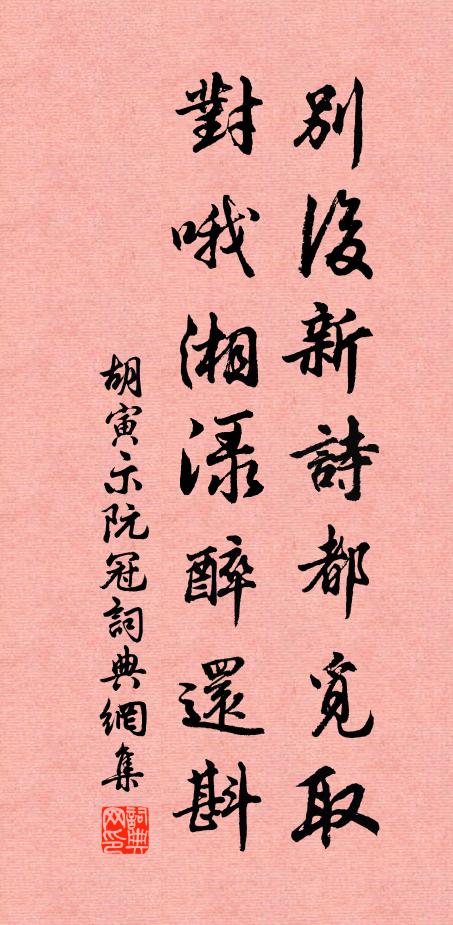 別後新詩都覓取
對哦湘淥醉還斟
胡寅示阮冠詞典網集
詞典网印